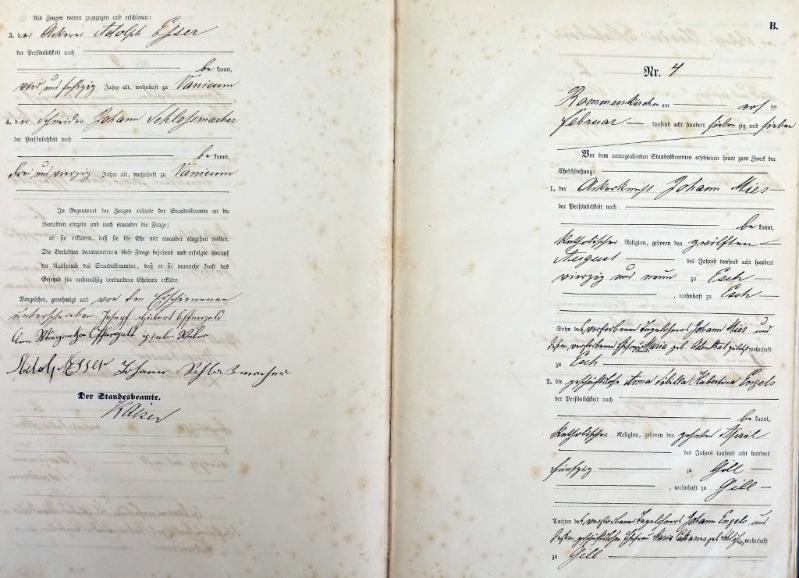 Als Zeugen waren zugezogen und erschienen:
3. der Ackerer Adolph Esser
der Persönlichkeit nach
be kannt,
vier und fünfzig Jahre alt, wohnhaft zu Vanicum
4. der Schneider Johann Schlossmacher
der Persönlichkeit nach
be kannt,
drei und vierzig Jahre alt, wohnhaft zu Vanicum
In Gegenwart der Zeugen richtete der Standesbeamte an die
Verlobten einzeln und nach einander die Frage:
ob sie erklären, daß sie die Ehe mit einander eingehen wollen.
Die Verlobten beantworteten diese Frage bejahend und erfolgte hierauf
der Ausspruch des Standesbeamten, daß er sie nunmehr kraft des
Gesetzes für rechtmäßig verbundene Eheleute erkläre.
Vorgelesen, genehmigt und von den Erschienenen
unterschrieben Josef Hubert
Anna Margaretha geb.
Adolf Esser Johann Schloßmacher
Der Standesbeamte.
Kaiser
B.
Nr. 4
Rommerskirchen am
Februar tausend acht hundert sieben zig und sieben
Vor dem unterzeichneten Standesbeamten erschienen heute zum Zweck der
Eheschließung:
1. der Ackerknecht Johann Mies
der Persönlichkeit nach
be kannt,
katholischer Religion, geboren den zwölften
August des Jahres tausend acht hundert
vierzig und neun zu Esch
, wohnhaft zu Esch
Sohn des verstorbenen Tagelöhners Johann Mies und
dessen verstorbenen Ehefrau Maria geb. zuletzt wohnhaft
zu Esch
2. die geschäftslose Anna Sibilla Hubertina Engels
der Persönlichkeit nach
be kannt,
katholischer Religion, geboren den zehnten April
des Jahres tausend acht hundert
fünfzig zu Gill
, wohnhaft zu Gill
Tochter des verstorbenen Tagelöhners Johann Engels und
dessen geschäftslosen Ehefrau Maria Catharina geb. wohnhaft
zu Gill